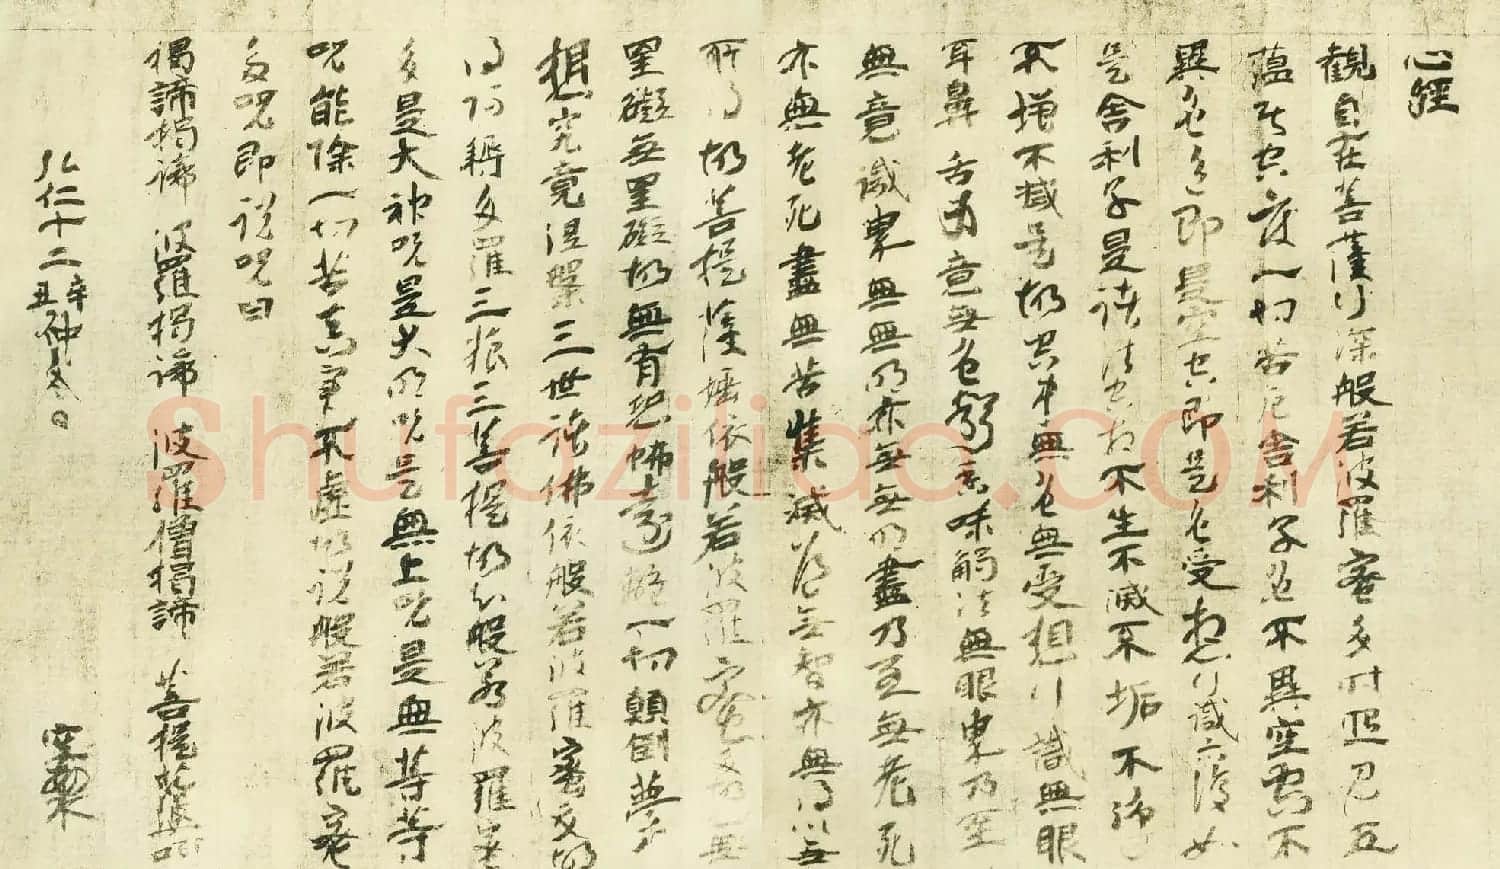 心經
觀自在菩薩行深般若波羅蜜多時照見五
蘊皆空度一切苦厄舍利子色不異空空不
異色色即是空空即是色受想行識亦復如
是舍利子是諸法空相不生不滅不垢不淨
不增不減是故空中無色無受想行識無眼
耳鼻舌身意無色聲香味觸法無眼界乃至
無意識界無無明亦無無明盡乃至無老死
亦無老死盡無苦集滅道無智亦無得以無
所得故菩提薩埵依般若波羅蜜多故無
罣礙無罣礙故無有恐怖遠離一切顛倒夢
想究竟涅槃三世諸佛依般若波羅蜜多故
得阿耨多羅三藐三菩提故知般若波羅蜜
多是大神呪是大明呪是無上呪是無等等
呪能除一切苦真實不虛故說般若波羅蜜
多呪即說呪曰
揭諦揭諦 波羅揭諦 波羅僧揭諦 菩提薩婆訶
弘仁十二辛丑仲冬日 空海
shufaziliao.com